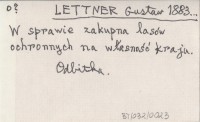 o?
LETTNER Gustaw 1883...
W sprawie zakupna lasów
ochronnych na własność kraju.
Odbitka.